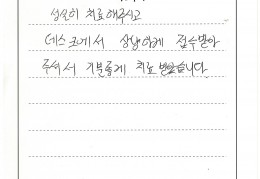 성실히 치료해주시고
데스크에서 상냥하게 접수받아
주셔서 기분좋게 치료 받았습니다